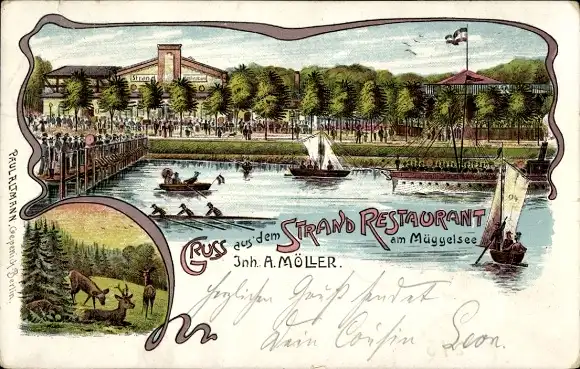 Strand Restaurant
Gruss aus dem Strand Restaurant
am Müggelsee
Inh. A. Möller.
Herzlichen Gruß sendet
Dein Cousin Leon.
Paul Altmann
Berlin.